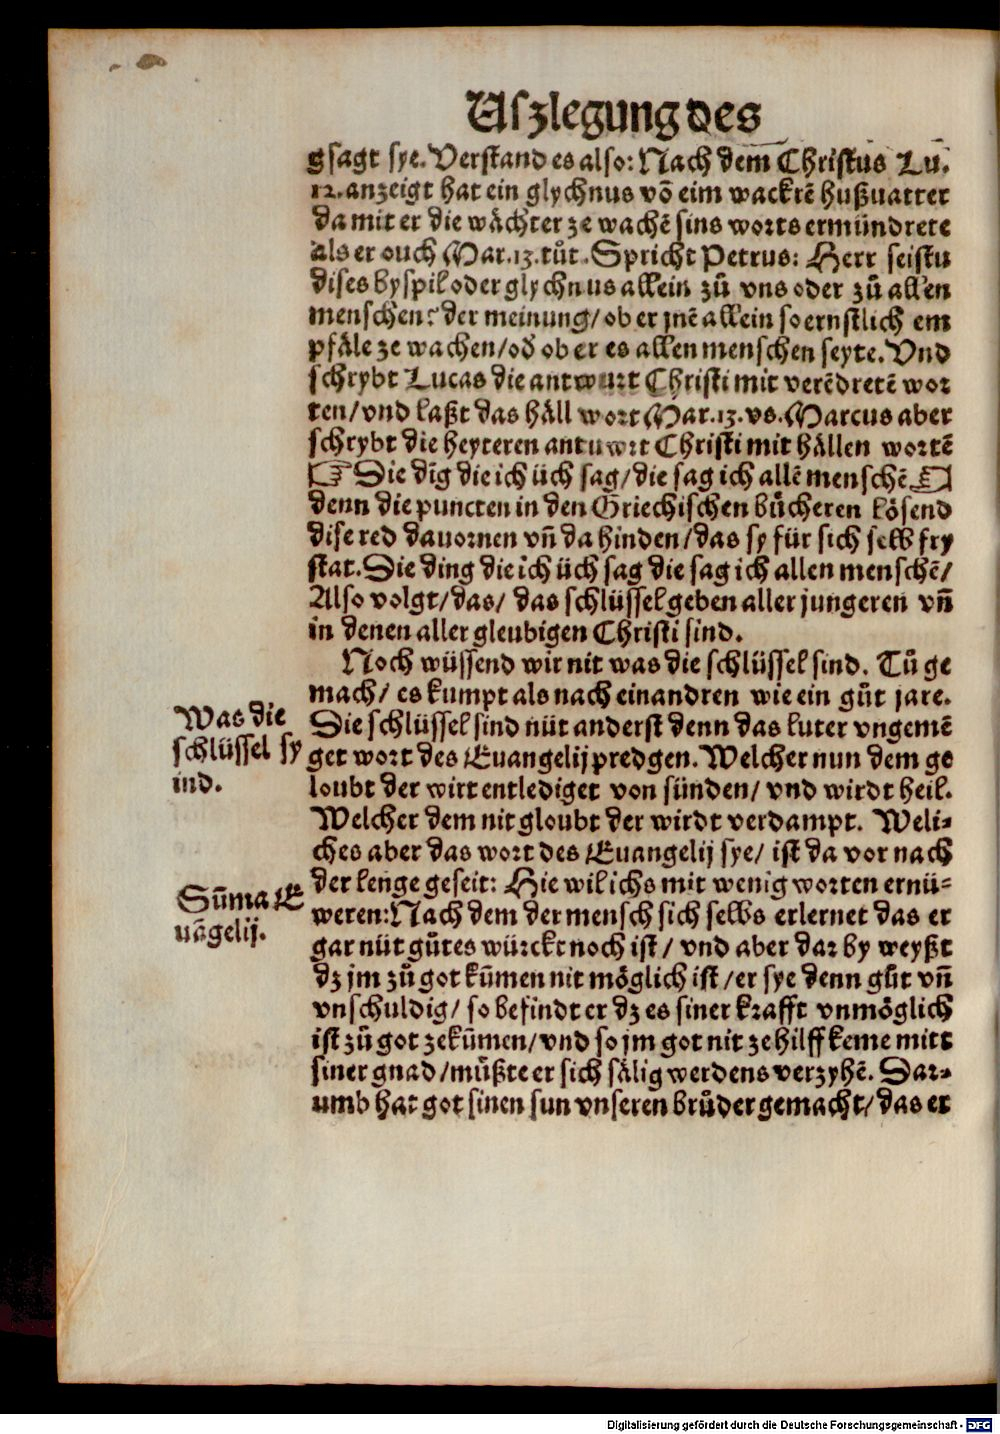 Uſzlegung des
gſagt ſye. Verſtand es alſo: Nach dem Chriſtus Lu.
12. anzeigt hat ein glychnus võ eim wackrẽ hußuatter
da mit er die wächter ze wachẽ ſins worts ermündrete
als er ouch Mar. 13. tuͦt. Spricht Petrus: Herr ſeiſtu
diſes byſpil oder glychnus allein zuͦ vns oder zuͦ allen
menſchen? der meinung/ ob er jnẽ allein ſo ernſtlich em
pfäle ze wachen/ od̕ ob er es allen menſchen ſeyte. Vnd
ſchrybt Lucas die antwurt Chriſti mit verẽdretẽ wor
ten/ vnd laßt das häll wort Mar. 13. vs. Marcus aber
ſchrybt die heyteren antuwrt Chriſti mit hällen wortẽ
☞ Die dĩg die ich üch ſag/ die ſag ich allẽ menſchẽ ☜
denn die puncten in den Griechiſchen buͤcheren löſend
diſe red dauornen vñ da hinden/ das ſy für ſich ſelb fry
ſtat. Die ding die ich üch ſag die ſag ich allen menſchẽ/
Alſo volgt/ das/ das ſchlüſſel geben aller jungeren vñ
in denen aller gleubigen Chriſti ſind.
Noch wüſſend wir nit was die ſchlüſſel ſind. Tuͦ ge
mach/ es kumpt als nach einandren wie ein guͦt jare.
Was die
ſchlüſſel ſy
ind.
Die ſchlüſſel ſind nüt anderſt denn das luter vngemẽ
get wort des Euangelij predgen. Welcher nun dem ge
loubt der wirt entlediget von ſünden/ vnd wirdt heil.
Welcher dem nit gloubt der wirdt verdampt. Weli⸗
ches aber das wort des Euangelij ſye/ iſt da vor nach
Sũma E
uãgelij.
der lenge geſeit: Hie wil ichs mit wenig worten ernü⸗
weren: Nach dem der menſch ſich ſelbs erlernet das er
gar nüt guͦtes würckt noch iſt/ vnd aber dar by weyßt
dz jm zuͦ got kũmen nit möglich iſt/ er ſye denn guͦt vñ
vnſchuldig/ ſo befindt er dz es ſiner krafft vnmöglich
iſt zuͦ got zekũmen/ vnd ſo jm got nit ze hilff keme mitt
ſiner gnad/ muͤßte er ſich ſälig werdens verzyhẽ. Dar⸗
umb hat got ſinen ſun vnſeren bruͦder gemacht/ das er
Digitalisierung gefördert durch die Deutsche Forschungsgemeinschaft - DFG